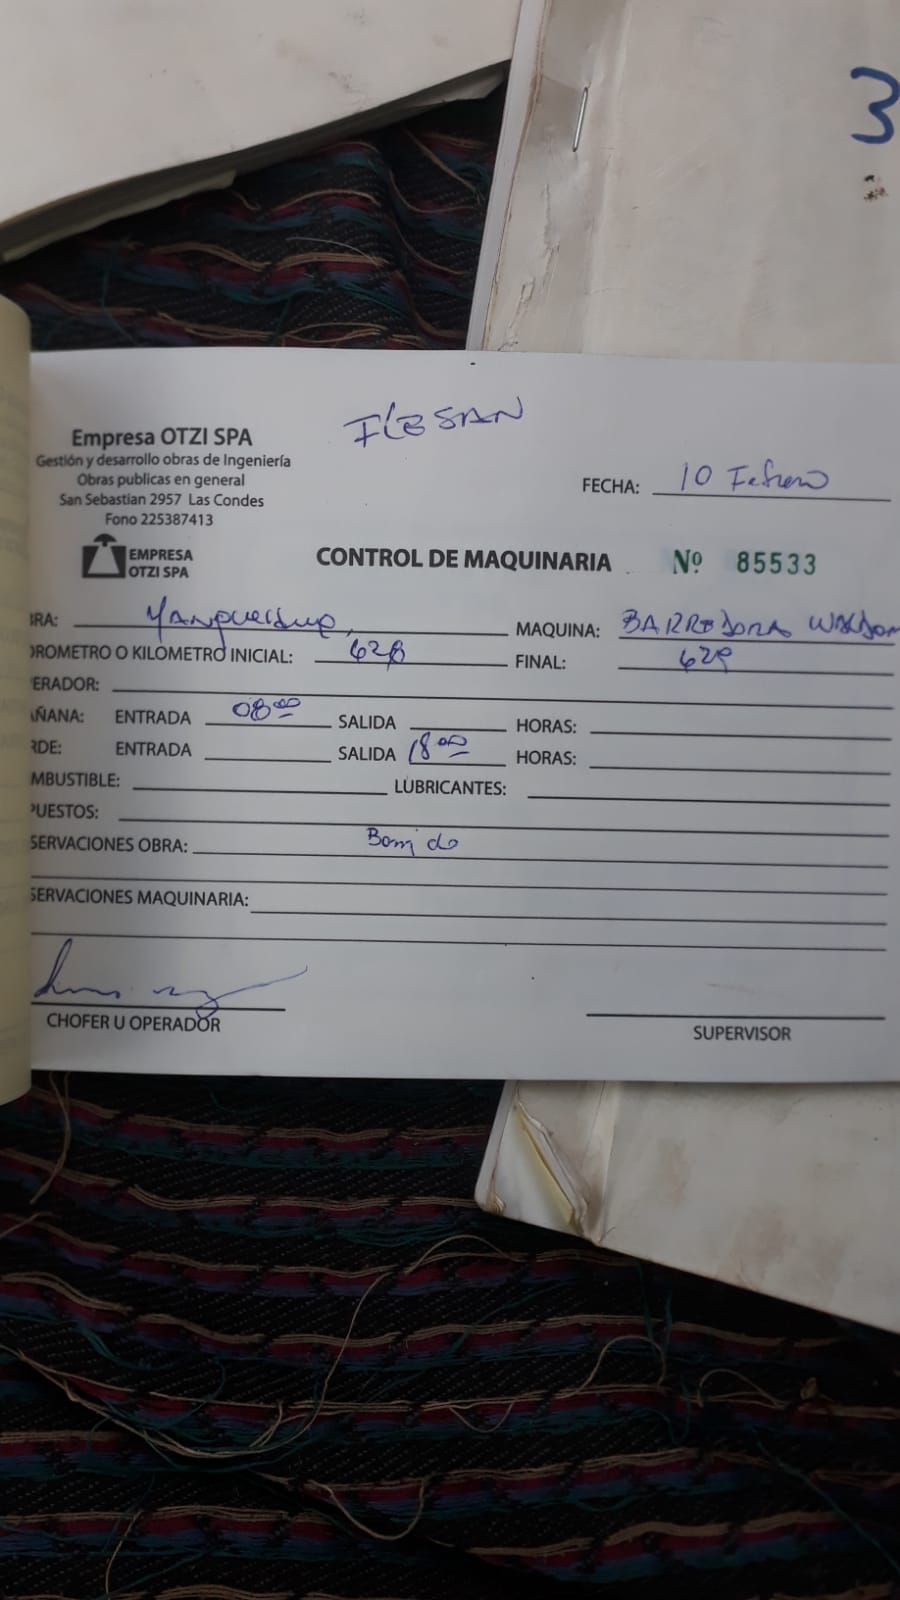 3
ILESAN
Empresa OTZI SPA
Gestión y desarrollo obras de Ingeniería
Obras publicas en general
San Sebastian 2957 Las Condes
Fono 225387413
EMPRESA
OTZI SPA
FECHA: 10 Febrero
CONTROL DE MAQUINARIA Nº 85533
BRA: MAQUINA: BARREDORA
OROMETRO O KILOMETRO INICIAL: 628 FINAL: 629
ERADOR:
AÑANA: ENTRADA 08:00 SALIDA HORAS:
RDE: ENTRADA SALIDA 18:00 HORAS:
MBUSTIBLE: LUBRICANTES:
PUESTOS:
SERVACIONES OBRA: Barrido
SERVACIONES MAQUINARIA:
CHOFER U OPERADOR SUPERVISOR